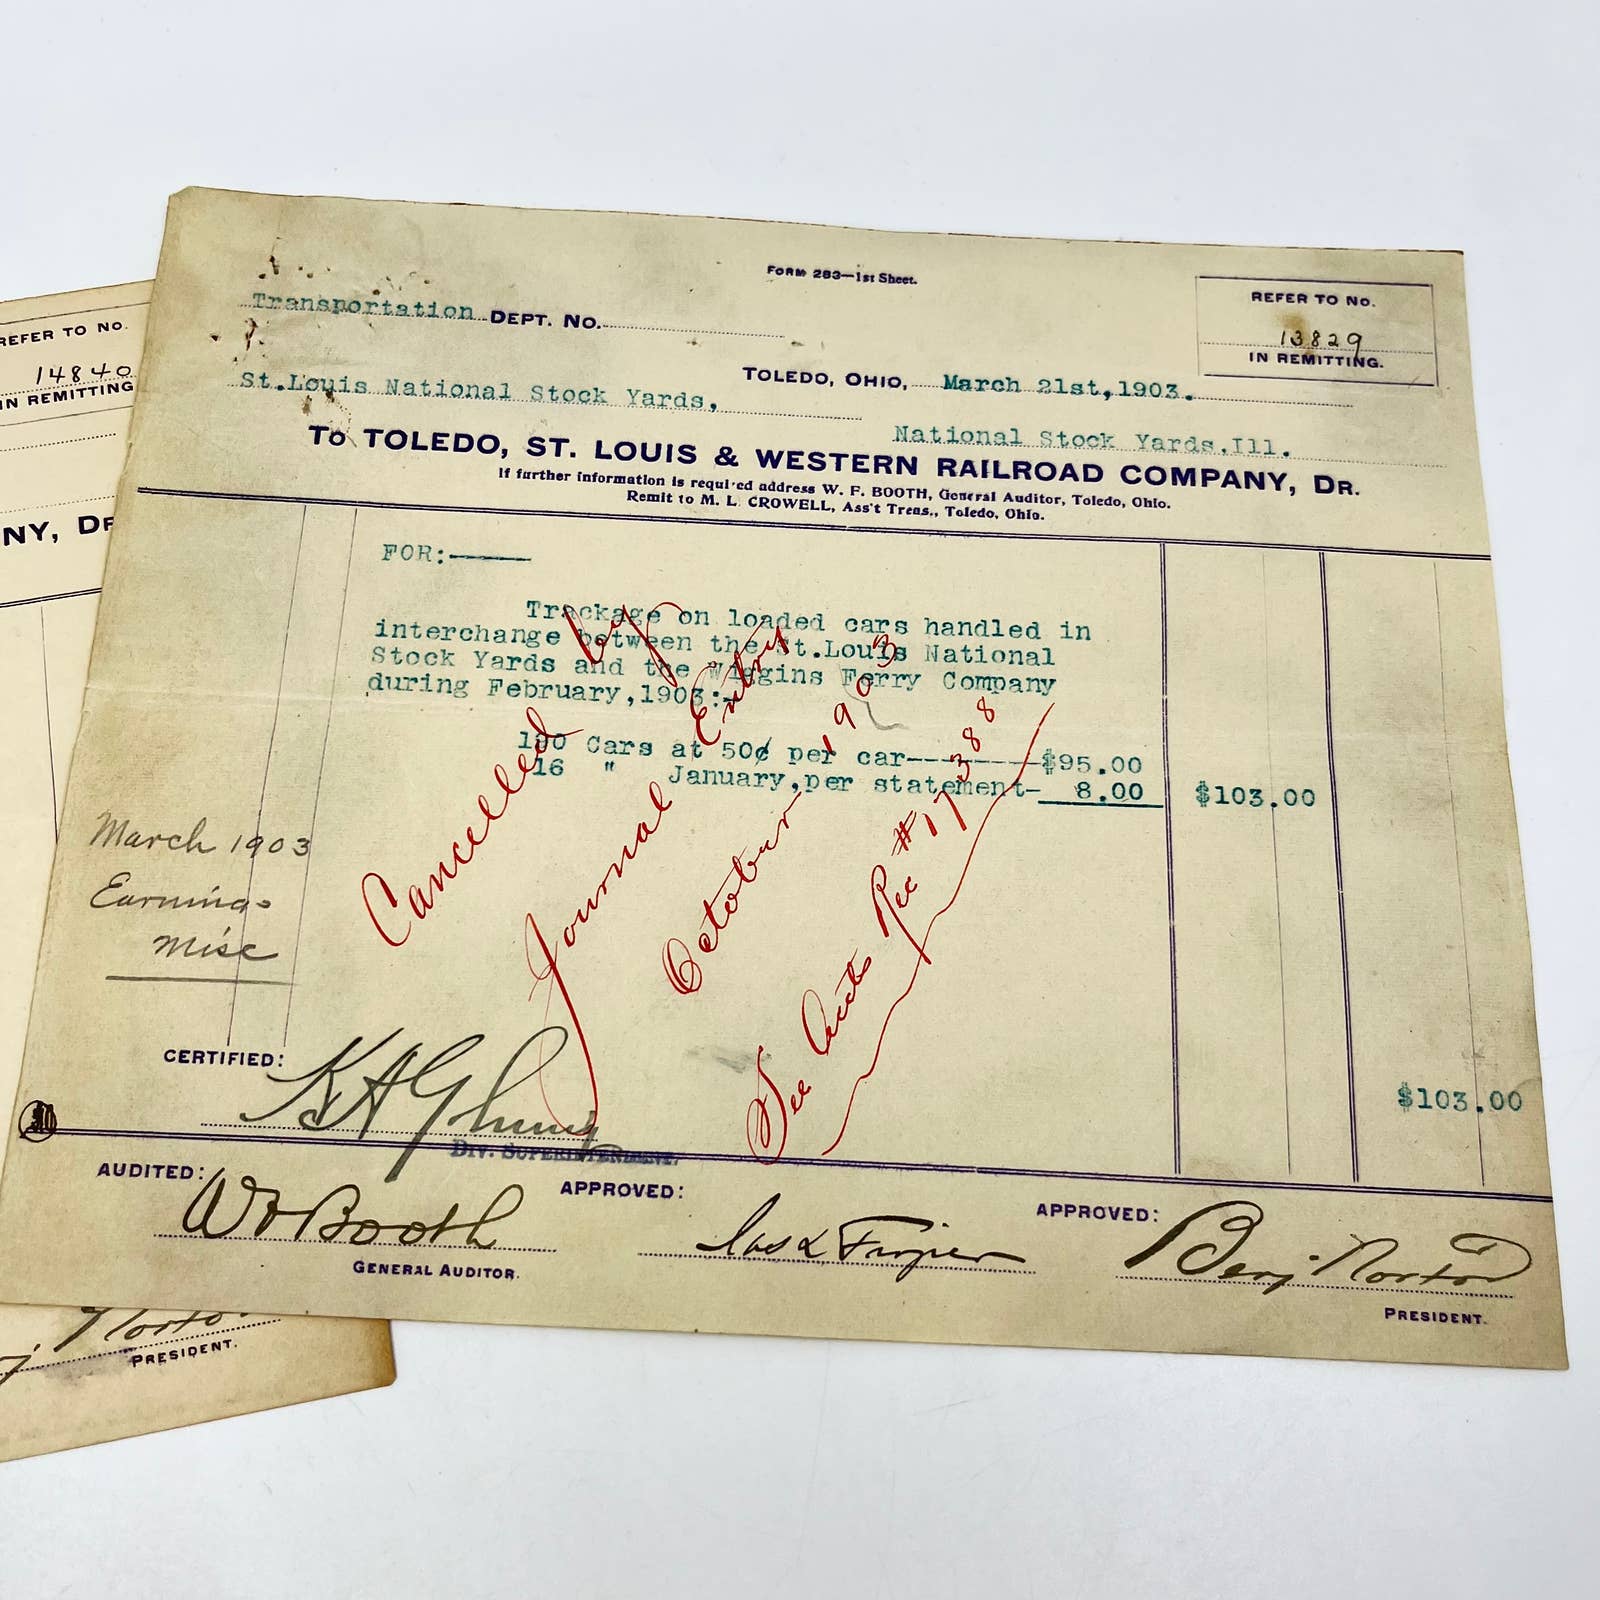 REFER TO NO.
14840
IN REMITTING
NY, DR
Norton
PRESIDENT.
FORM 283—1st Sheet.
REFER TO NO.
13829
IN REMITTING.
Transportation DEPT. NO.
TOLEDO, OHIO, March 21st,1903.
St.Louis National Stock Yards,
National Stock Yards.Ill.
TO TOLEDO, ST. LOUIS & WESTERN RAILROAD COMPANY, DR.
If further information is required address W. F. BOOTH, General Auditor, Toledo, Ohio.
Remit to M. L. CROWELL, Ass't Treas., Toledo, Ohio.
FOR:
Trackage on loaded cars handled in
interchange between the St.Louis National
Stock Yards and the Wiggins Ferry Company
during February,1903:-
190 Cars at 50¢ per car-------$95.00
16 " January,per statement- 8.00 $103.00
Cancelled by
Journal Entry
October 1903
See Accts Rec #17388
March 1903
Earnings
Misc
$103.00
CERTIFIED:
DIV. SUPERINTENDENT.
AUDITED: W F Booth
GENERAL AUDITOR.
APPROVED:
APPROVED: Benj Norton
PRESIDENT.